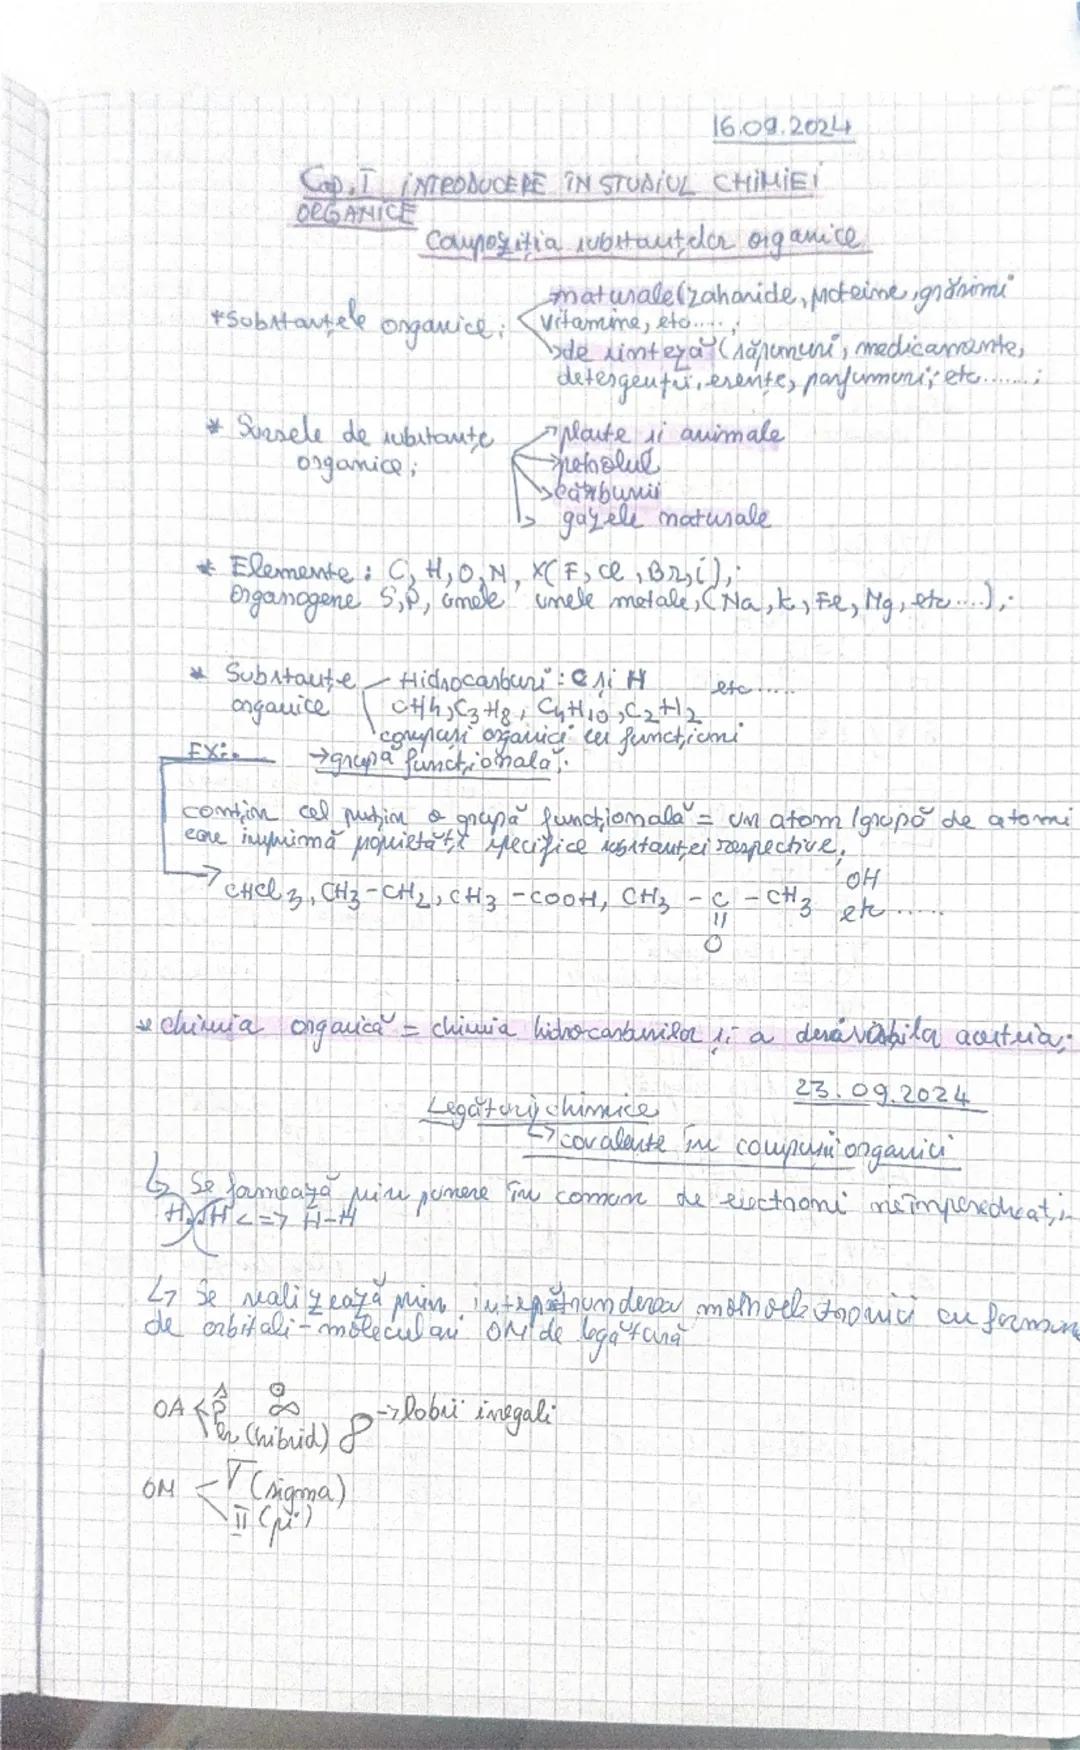 16.09.2024
Cap. I INTRODUCERE ÎN STUDIUL CHIMIEI
ORGANICE
Compoziția substanțelor organice
naturale (zaharide, proteine, grăsimi
*Substanțele organice: vitamine, etc....;
de sinteză (săpunuri, medicamente,
detergenți, esențe, parfumuri; etc......;
* Sursele de substanțe plante și animale
organice; petrolul
cărbunii
gazele naturale
* Elemente: C, H, O, N, X(F, Cl, Br, i),;
Organogene S, P, unele metale, (Na, K, Fe, Mg, etc....),;
* Substanțe Hidrocarburi: C și H etc.....
organice CH4, C3H8, C4H10, C2H2
compuși organici cu funcțiuni
EX: →grupă funcțională;
conțin cel puțin o grupă funcțională = un atom/grupă de atomi
care imprimă proprietăți specifice substanței respective,
→ CHCl3, CH3-CH2, CH3-COOH, CH3 - C - CH3 OH
etc.....
=
O
* chimia organică = chimia hidrocarburilor și a
23.09.2024
Legături chimice
↳ covalente în compuși organici
↳ Se formează prin punere în comun de electroni neîmperecheați
H..H <=> H-H
↳ Se realizează prin
de orbitali-moleculari OM de legătură
OA < p
(hibrid) → lobii inegali
OM < (sigma)
π (pi)